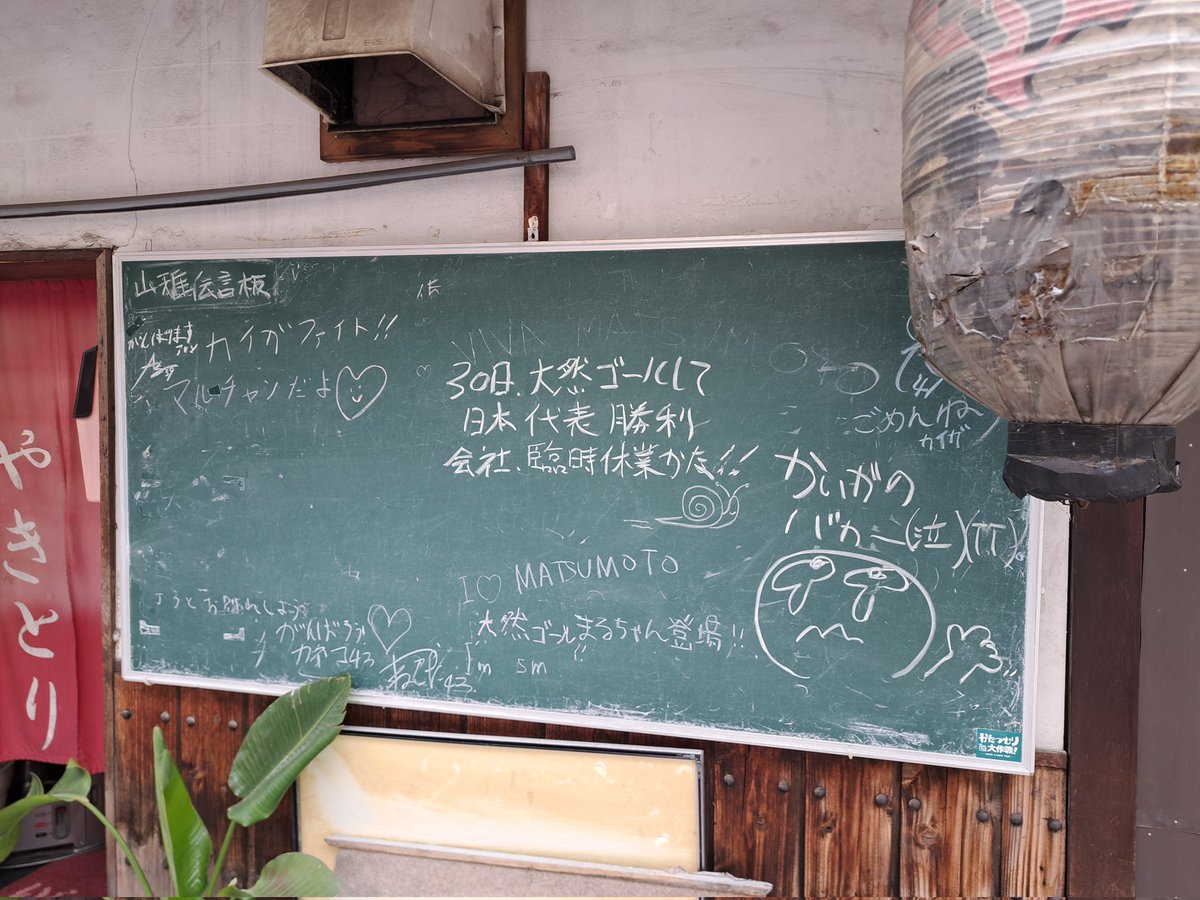 やきとり
山雅伝言板
がんばります
カイガファイト!!
マルチャンだよ
VIVA
30日、大然ゴールして
日本代表勝利
会社、臨時休業かな!!
ごめんね
カイガ
かいがの
バカー(泣)(TT)
I♡MATSUMOTO
大然ゴールまるちゃん登場!!
がんばろう
m sm
かたつむり
大作戦!